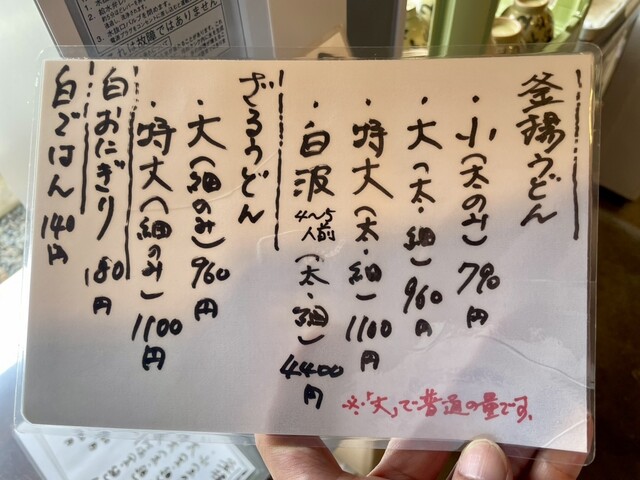 釜揚うどん
・小(太のみ)790円
・大(太・細)960円
・特大(太・細)1100円
・白波4〜5人前(太・細)4400円
ざるうどん
・大(細のみ)960円
・特大(細のみ)1100円
白おにぎり180円
白ごはん140円
※「大」で普通の量です。
故障ではありません